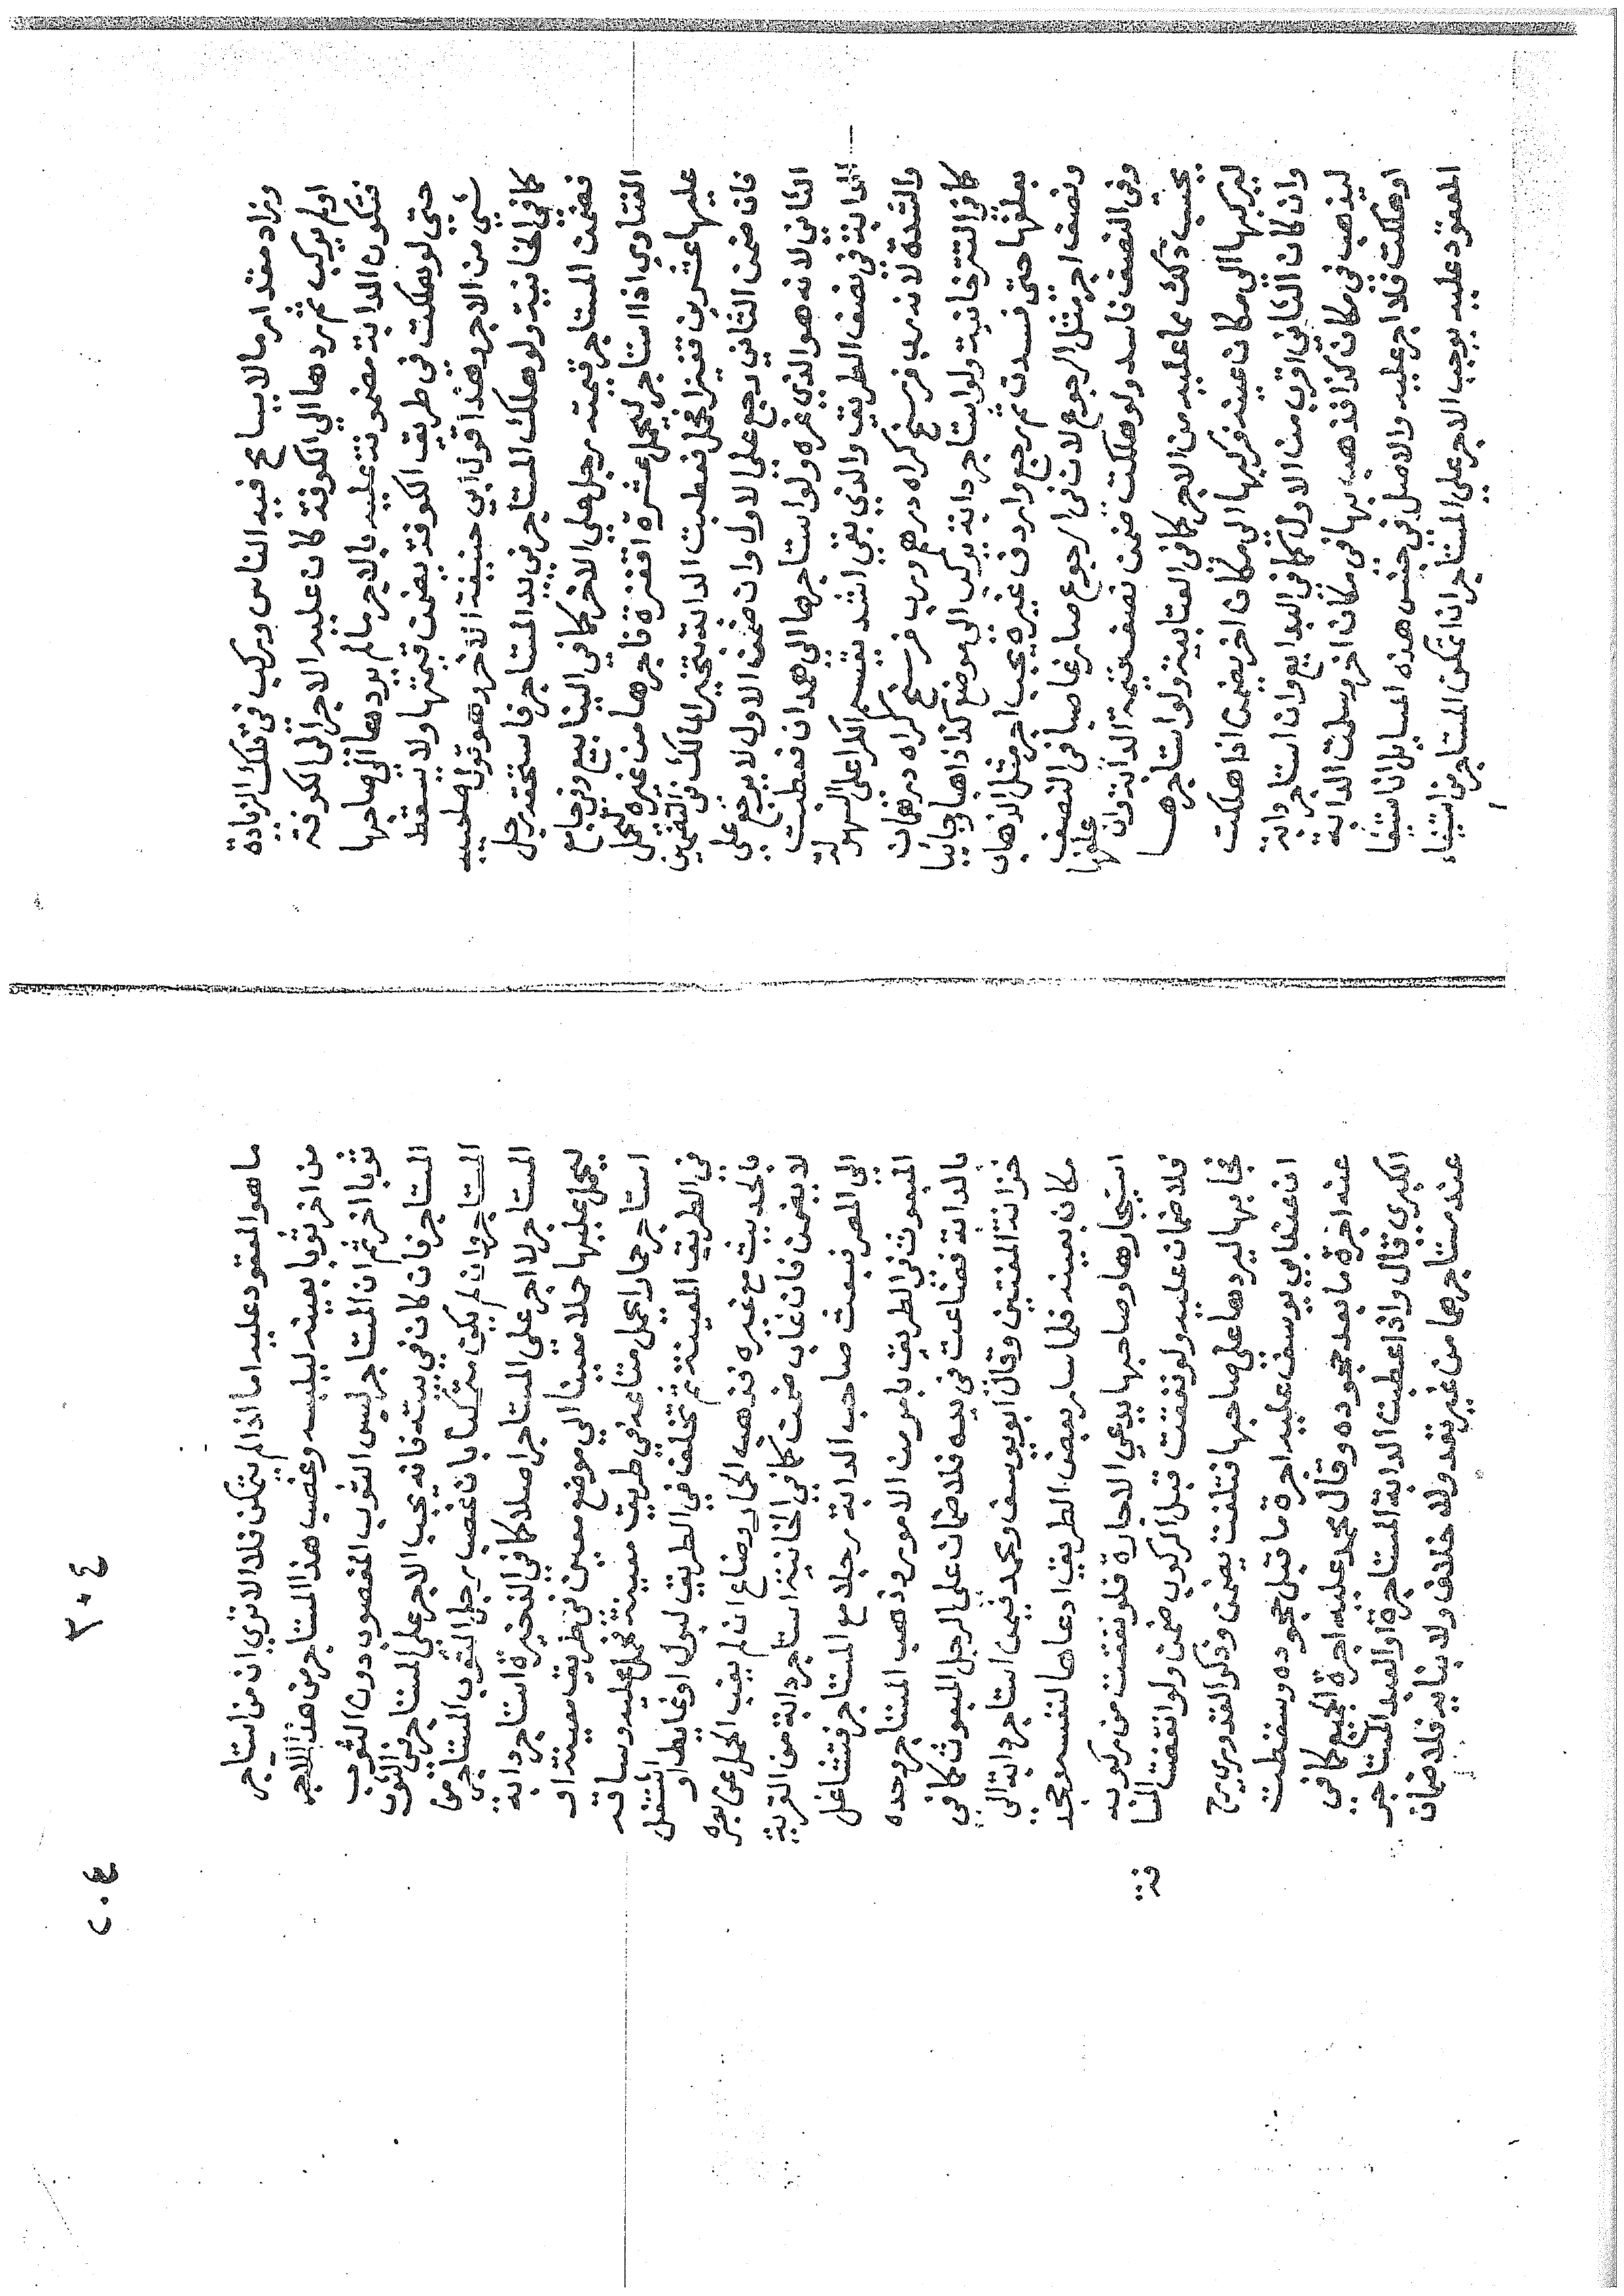 وزاد مقدار ما لا يسامح فيه الناس وركب في تلك الزيادة
او لم يركب ثم ردها الي الكوفة كان عليه الاجر الي الكوفة
فتكون الدابة مضمونة عليه بالاجر ما لم يردها الي صاحبها
حتي لو هلكت في طريق الكوفة يضمن قيمتها ولا يسقط
شيء من الاجر بهذا قول ابي حنيفة الاخر وهو قول صاحبيه
كما في الخانية ولو هلك المستاجر في يد المستاجر فاستحقه رجل
فضمن المستاجر قيمته رجل علي الاخر كما في الينابيع وفي جامع
الفتاوي اذا استاجر ليحمل عشرة اقفزة فاجرها من غيره ليحمل
عليها عشرين قفيزا فحمل فعطبت الدابة تخير المالك في التضمين
فان ضمن الثاني رجع علي الاول وان ضمن الاول لا يرجع علي
الثاني لانه هو الذي غره ولو استاجرها الي همدان فعطبت
الدابة في نصف الطريق والذي بقي اشد يقسم الكرا علي السهولة
والشدة لانه رب فرسخ كراه درهم ورب فرسخ كراه درهمان
كما في التترخانية ولو استاجر دابة يركب الي موضع كذا ذاهبا وجائيا
بعلفها حتي فسدت ثم رجع واردف غيره يجب اجر مثل الذهاب
ونصف اجر مثل الرجوع لان في الرجوع صار غاصبا في النصف
وفي النصف فاسد ولو هلكت ضمن نصف قيمة الدابة وان علفها
يحتسب ذلك مما عليه من الاجر كما في العتابية ولو استاجرها
ليركبها الي مكان عينه فركبها الي مكان اخر يضمن اذا هلكت
وان كان الثاني اقرب من الاول كما في البدايع وان استاجر دابة
ليذهب في مكان كذا فذهب بها في مكان اخر وسلمت الدابة
او هلكت فلا اجر عليه والاصل في جنس هذه المسايل ان استيفا
المعقود عليه يوجب الاجر علي المستاجر ان تمكن المستاجر من استيفاء
٢٠٤
٢٠٤
ما هو المعقود عليه اما اذا لم يتمكن فلا الا تري ان من استاجر
من اخر ثوبا بعينه ليلبسه وغصب هذا المستاجر من هذا الاجر
ثوبا اخر ثم ان المستاجر لبس الثوب المغصوب دون الثوب
المستاجر فان كان في بيته فانه يجب الاجر علي المستاجر في الثوب
المستاجر وان لم يكن متمكنا بان غصب رجل الثوب المستاجر من
المستاجر لا اجر علي المستاجر اصلا كما في الذخيرة استاجر دابة
ليحمل عليها حملا معينا الي موضع معين في طريق معينة او
استاجر حمارا يحمل متاعه في طريق معينة فحمل عليه وساقه
في الطريق المعينة ثم تخلف في الطريق لبول او غايط او اشتغل
بالحديث مع غيره فذهب الحمار وضاع ان لم يغب الحمل عن بصره
لا يضمن فان غاب ضمن كما في الخانية استاجر دابة من القرية
الي المصر فبعث صاحب الدابة رجلا مع المستاجر فتشاغل
المبعوث في الطريق بامر من الامور وذهب المستاجر وحده
بالدابة فضاعت في يده فلا ضمان علي الرجل المبعوث كما في
خزانة المفتين وقال ابو يوسف ومحمد فيمن استاجر دابة الي
مكان بعينه فلما سار بعض الطريق ادعاها لنفسه وجحد
استيجارها وصاحبها يدعي الاجارة فلو نفقت من ركوبه
فلا ضمان عليه ولو نفقت قبل الركوب ضمن ولو انقضت المسا
فة
فجا بها ليردها علي صاحبها فتلفت يضمن وذكر القدوري رح
ان عند ابي يوسف عليه اجرة ما قبل جحوده وسقطت
عنه اجرة ما بعد جحوده وقال محمد عليه اجرة الجميع كما في
الكبري قال واذا عطبت الدابة المستاجرة او العبد المستاجر
عند مستاجرهما من غير تعد ولا خلاف ولا جناية فلا ضمان